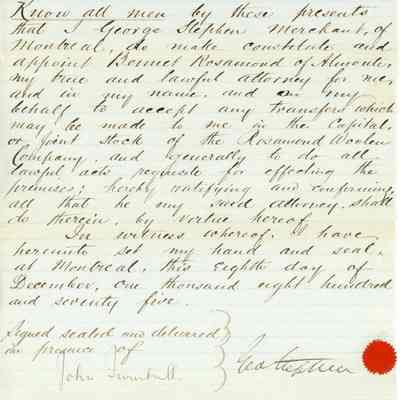 Know all men by these presents
that I George Stephen Merchant, of
Montreal, do make constitute and
appoint Bennet Rosamond of Almonte,
my true and lawful attorney for me,
and in my name, and on my
behalf to accept any transfers which
may be made to me in the Capital,
or Joint Stock of the Rosamond Woolen
Company, and generally to do all
lawful acts requisite for effecting the
premises; hereby ratifying and confirming,
all that he my said attorney, shall
do therein, by virtue hereof.
In witness whereof, I have,
hereunto set my hand and seal,
at Montreal, this eighth day of
December, one thousand eight hundred
and seventy five.
Signed sealed and delivered
in presence of
John Turnbull
Geo Stephen